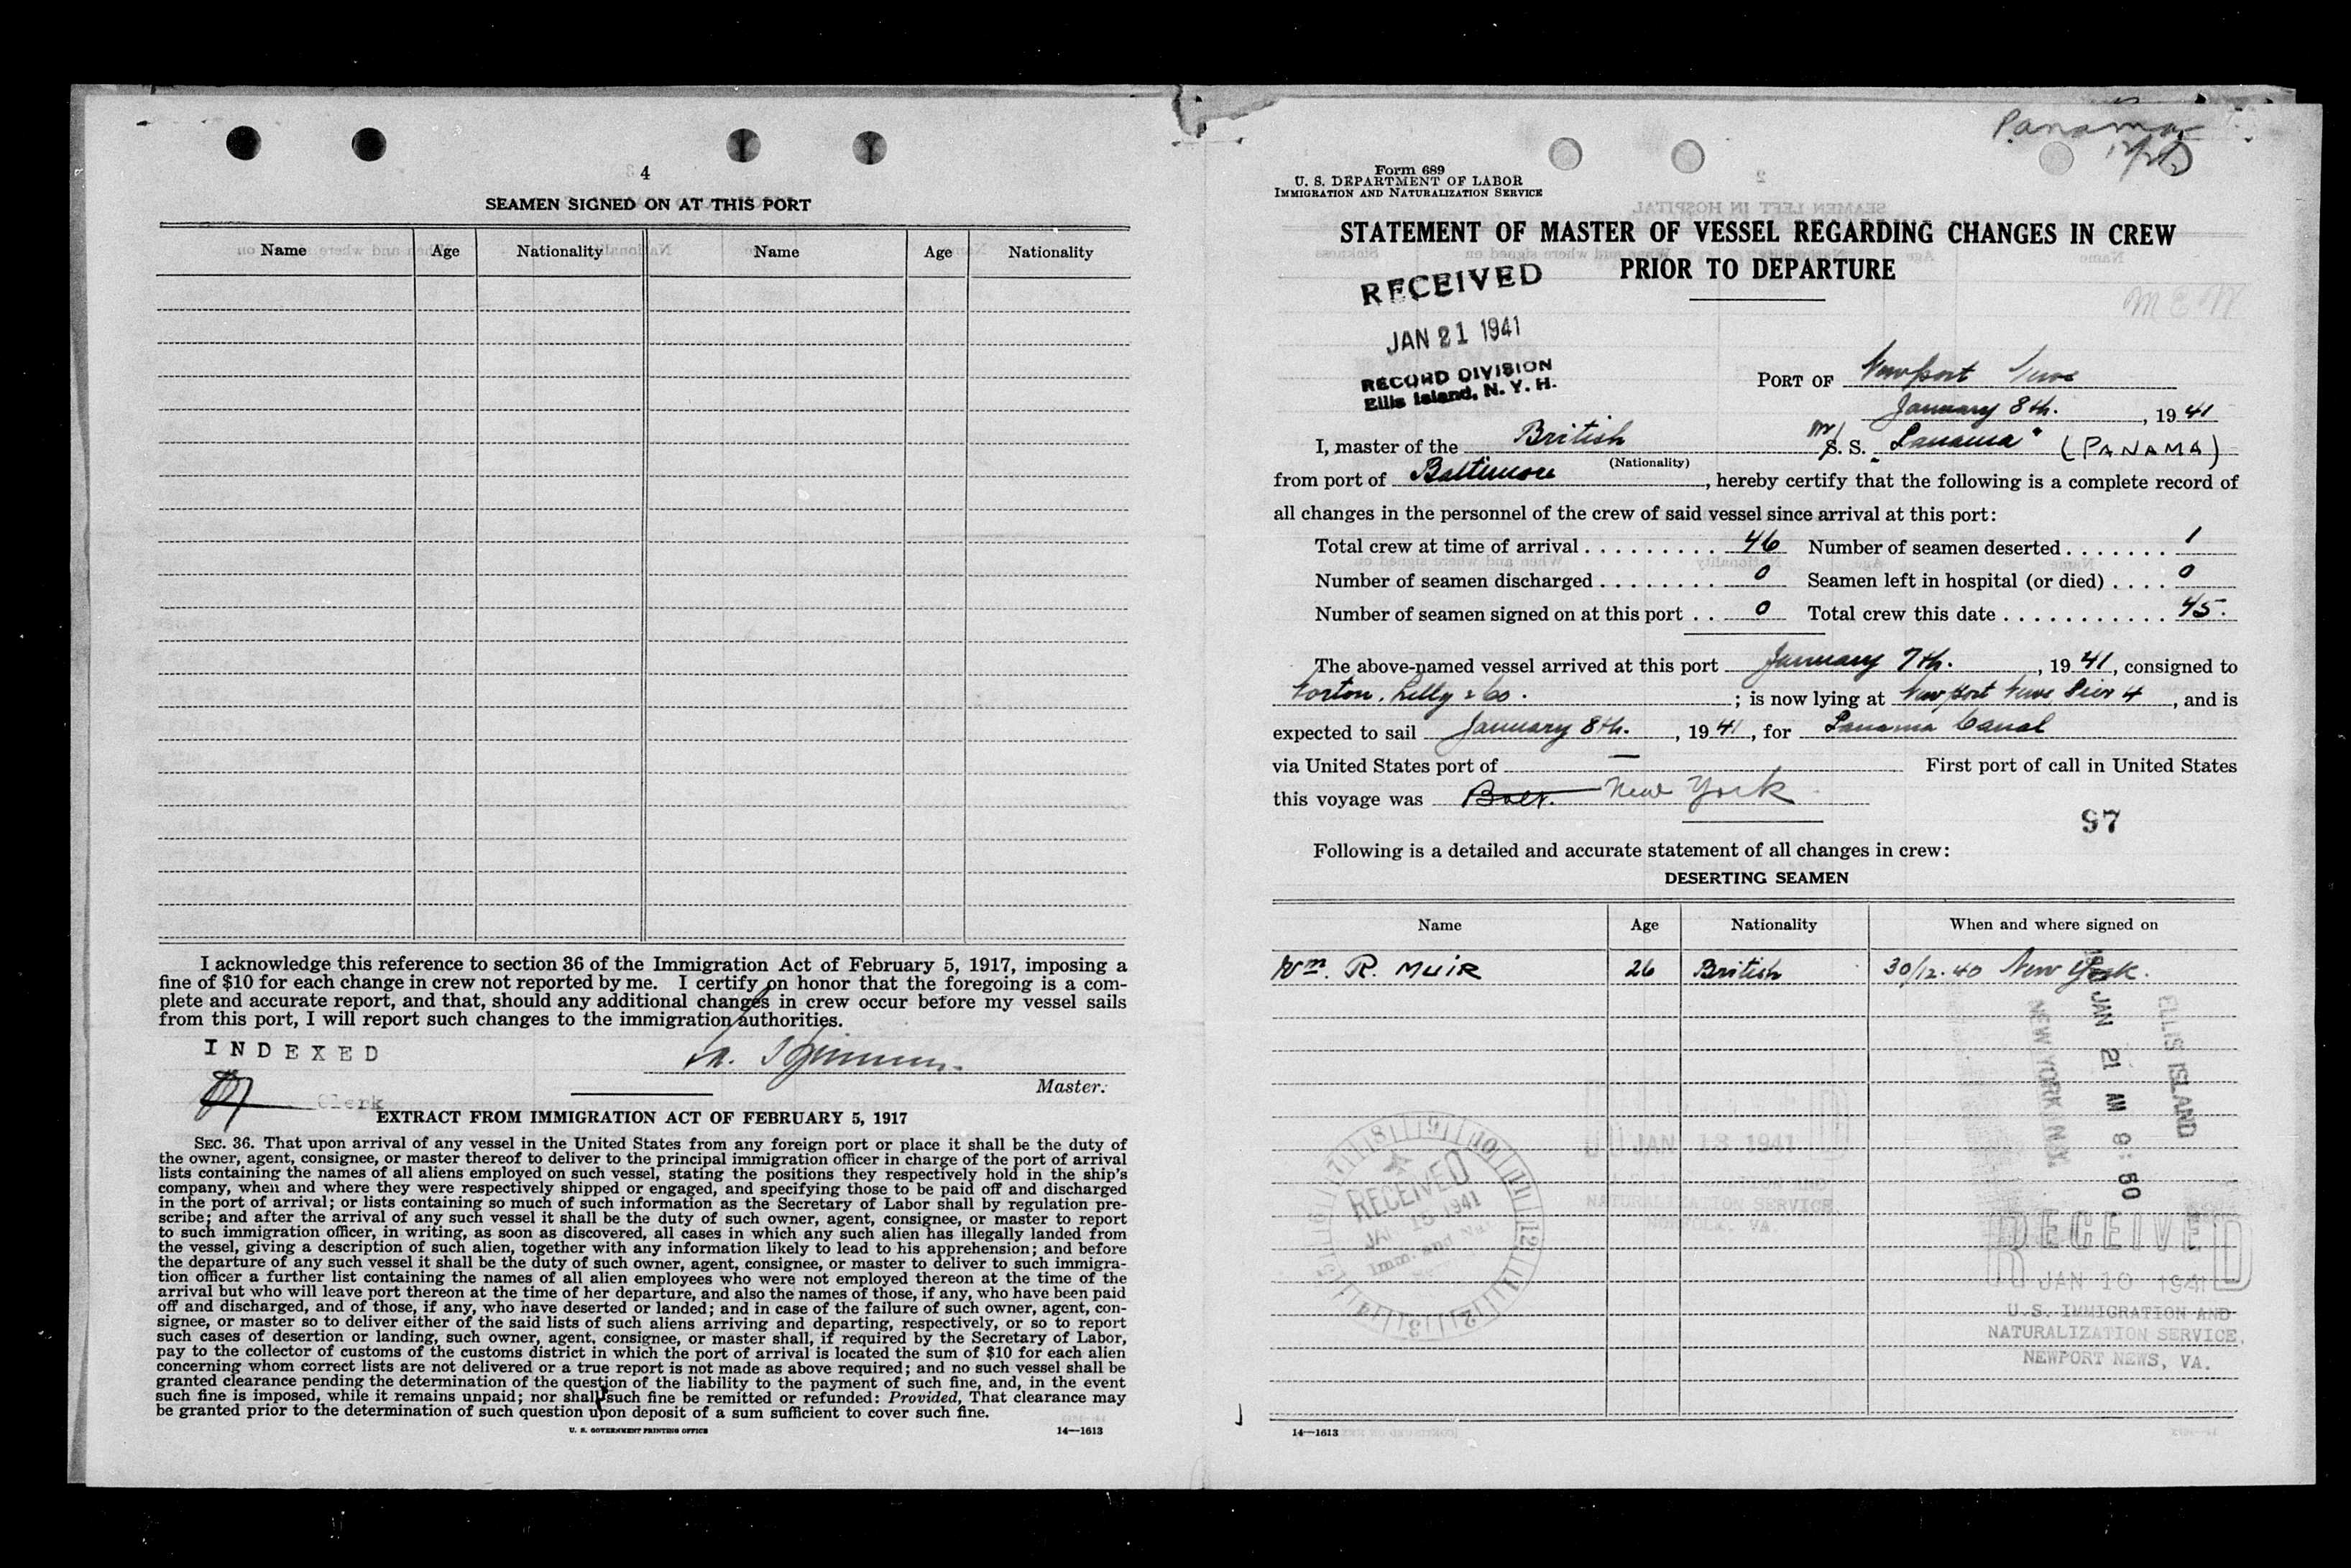 4
SEAMEN SIGNED ON AT THIS PORT
Name Age Nationality Name Age Nationality
I acknowledge this reference to section 36 of the Immigration Act of February 5, 1917, imposing a
fine of $10 for each change in crew not reported by me. I certify on honor that the foregoing is a com-
plete and accurate report, and that, should any additional changes in crew occur before my vessel sails
from this port, I will report such changes to the immigration authorities.
INDEXED
Clerk
Master.
EXTRACT FROM IMMIGRATION ACT OF FEBRUARY 5, 1917
SEC. 36. That upon arrival of any vessel in the United States from any foreign port or place it shall be the duty of
the owner, agent, consignee, or master thereof to deliver to the principal immigration officer in charge of the port of arrival
lists containing the names of all aliens employed on such vessel, stating the positions they respectively hold in the ship's
company, when and where they were respectively shipped or engaged, and specifying those to be paid off and discharged
in the port of arrival; or lists containing so much of such information as the Secretary of Labor shall by regulation pre-
scribe; and after the arrival of any such vessel it shall be the duty of such owner, agent, consignee, or master to report
to such immigration officer, in writing, as soon as discovered, all cases in which any such alien has illegally landed from
the vessel, giving a description of such alien, together with any information likely to lead to his apprehension; and before
the departure of any such vessel it shall be the duty of such owner, agent, consignee, or master to deliver to such immigra-
tion officer a further list containing the names of all alien employees who were not employed thereon at the time of the
arrival but who will leave port thereon at the time of her departure, and also the names of those, if any, who have been paid
off and discharged, and of those, if any, who have deserted or landed; and in case of the failure of such owner, agent, con-
signee, or master so to deliver either of the said lists of such aliens arriving and departing, respectively, or so to report
such cases of desertion or landing, such owner, agent, consignee, or master shall, if required by the Secretary of Labor,
pay to the collector of customs of the customs district in which the port of arrival is located the sum of $10 for each alien
concerning whom correct lists are not delivered or a true report is not made as above required; and no such vessel shall be
granted clearance pending the determination of the question of the liability to the payment of such fine, and, in the event
such fine is imposed, while it remains unpaid; nor shall such fine be remitted or refunded: Provided, That clearance may
be granted prior to the determination of such question upon deposit of a sum sufficient to cover such fine.
U. S. GOVERNMENT PRINTING OFFICE 14—1613
Panama
Form 689
U. S. DEPARTMENT OF LABOR
IMMIGRATION AND NATURALIZATION SERVICE
STATEMENT OF MASTER OF VESSEL REGARDING CHANGES IN CREW
PRIOR TO DEPARTURE
M E W
RECEIVED
JAN 21 1941
RECORD DIVISION
Ellis Island, N. Y. H.
PORT OF Newport News
January 8th., 1941
I, master of the British M/S. S. "Panama" (PANAMA)
(Nationality)
from port of Baltimore, hereby certify that the following is a complete record of
all changes in the personnel of the crew of said vessel since arrival at this port:
Total crew at time of arrival 46 Number of seamen deserted 1
Number of seamen discharged 0 Seamen left in hospital (or died) 0
Number of seamen signed on at this port 0 Total crew this date 45.
The above-named vessel arrived at this port January 7th., 1941, consigned to
Norton, Lilly & Co.; is now lying at Newport News Pier 4, and is
expected to sail January 8th., 1941, for Panama Canal
via United States port of — First port of call in United States
this voyage was Balt. New York
97
Following is a detailed and accurate statement of all changes in crew:
DESERTING SEAMEN
Name Age Nationality When and where signed on
Wm. R. MUIR 26 British 30/12.40 New York.
ELLIS ISLAND
1941 JAN 21 AM 9:50
NEW YORK N.Y.
JAN 13 1941
IMMIGRATION AND
NATURALIZATION SERVICE,
NORFOLK, VA.
RECEIVED
JAN 13 1941
Imm. and Nat.
RECEIVED
JAN 10 1941
U.S. IMMIGRATION AND
NATURALIZATION SERVICE,
NEWPORT NEWS, VA.
14—1613